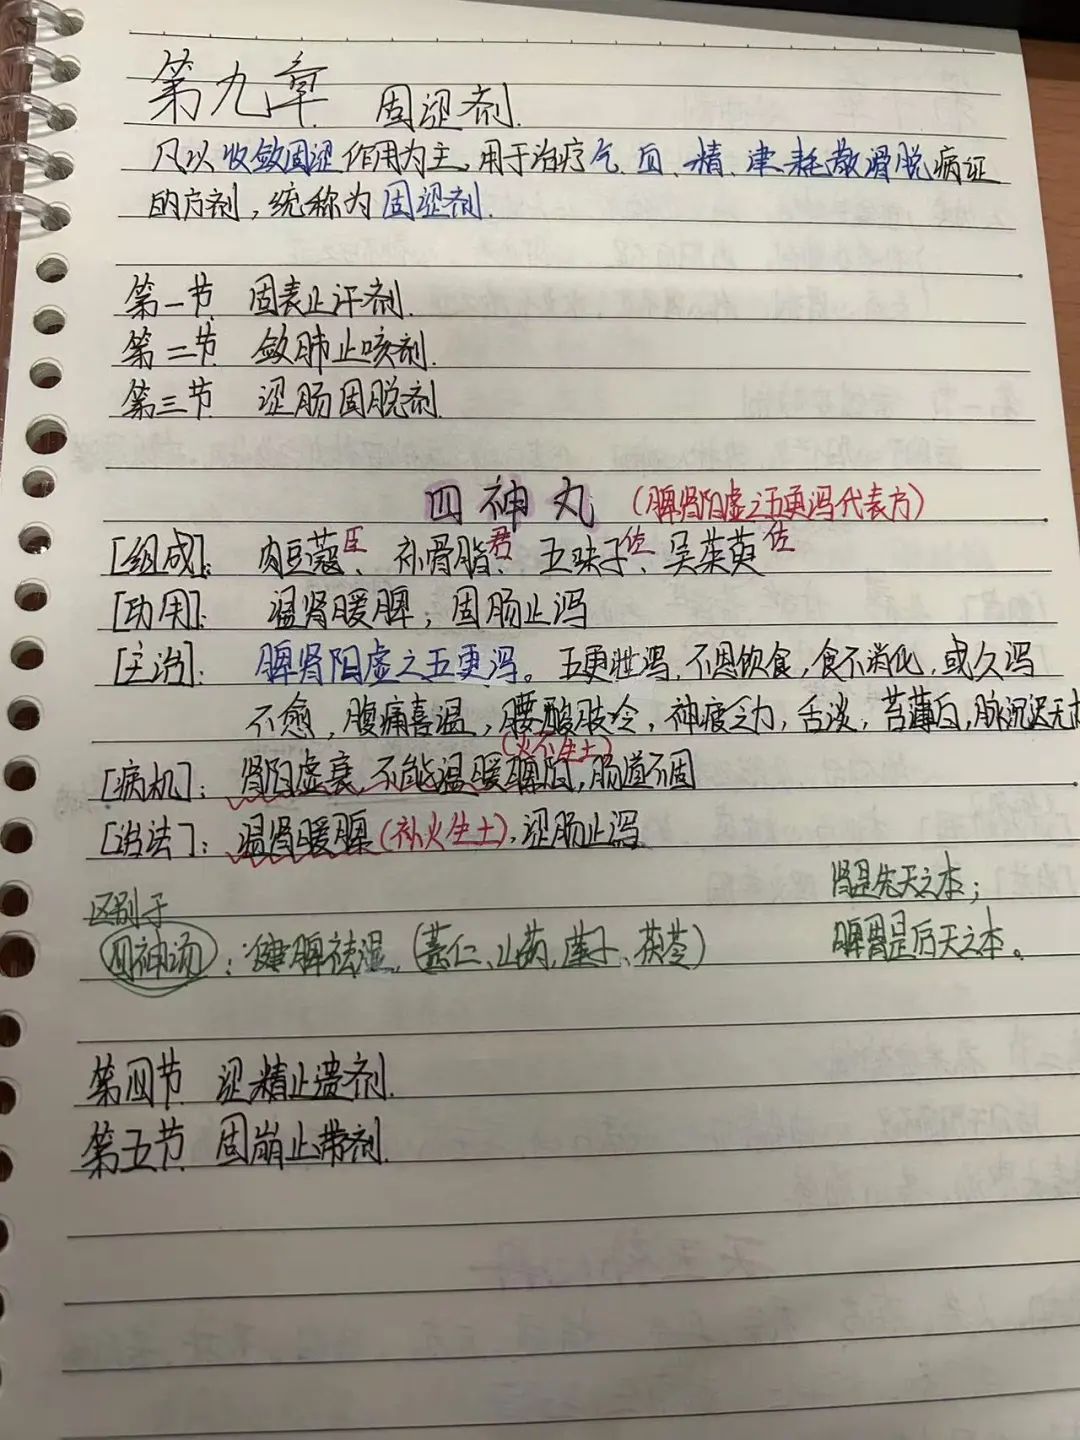 第九章 固涩剂.
凡以收敛固涩作用为主,用于治疗气、血、精、津耗散滑脱病证
的方剂,统称为固涩剂.
第一节 固表止汗剂.
第二节 敛肺止咳剂.
第三节 涩肠固脱剂.
四神丸 (脾肾阳虚之五更泻代表方)
[组成]: 肉豆蔻臣、补骨脂君、五味子佐、吴茱萸佐
[功用]: 温肾暖脾,固肠止泻
[主治]: 脾肾阳虚之五更泻。五更泄泻,不思饮食,食不消化,或久泻
不愈,腹痛喜温,腰酸肢冷,神疲乏力,舌淡,苔薄白,脉沉迟无
(火不生土)
[病机]: 肾阳虚衰,不能温暖脾阳,肠道不固
[治法]: 温肾暖脾(补火生土),涩肠止泻
肾是先天之本;
区别于
四神汤:健脾祛湿.(薏仁、山药,莲子、茯苓) 脾胃是后天之本。
第四节 涩精止遗剂.
第五节 固崩止带剂.